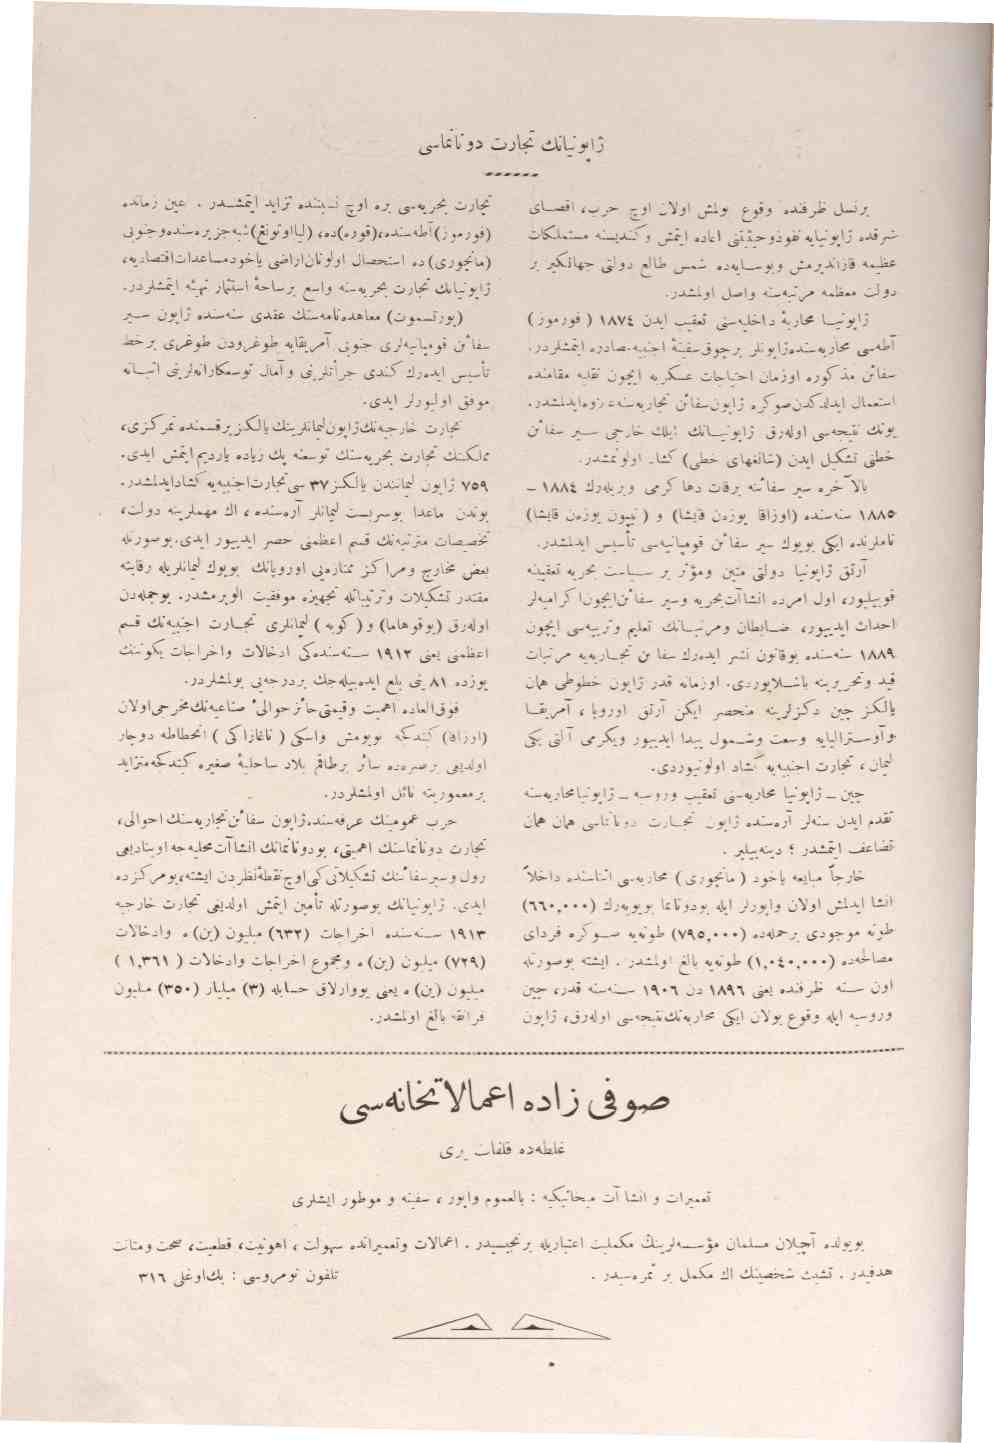 ژاپونيانك تجارت دوناتماسی
برنسل ظرفنده وقوع بولمش اولان اوچ حرب، اقصــای
شرقده ژاپونيايه نفوذ وحيثيتنی اعاده ايتمش وكنديسنه مستملكات
عظيمه قازانديرمش وبوسايه‌ده شمس طالع دولتی جهانگير بر
دولت معظمه مرتبه‌سنه واصل اولمشدر.
ژاپونيــا محاربهٔ داخليه‌سنی تعقيب ايدن ١٨٧٤ ( فورموز )
آطه‌سی محاربه‌سنده ژاپونلر برچوق سفينهٔ اجنبيه مصادره ايتمشلردر.
سفائن مذكوره اوزمان احتياجات عسكريه ايچون نقليه مقامنده
استعمال ايدلدكدن صوكره ژاپون سفائن تجاريه‌سنه ايدلمشدر.
بونك نتيجه‌سی اوله‌رق ژاپونيــانك ايلك خارجی ســير سفائن
خطنی تشكيل ايدن (شانغهای خطی) كشاد اولونمشدر.
بالآخره سير سفائنه برقات دها كرمی ويريله‌رك ١٨٨٤ –
١٨٨٥ سنه‌سنده (اوزاقا يوزه‌ن قايشا) و ( نيپون يوزه‌ن قايشا)
ناملرنده ايكی بويوك سير سفائن قومپانيه‌سی تأسيس ايدلمشدر.
آرتق ژاپونيا دولتی متين ومؤثر بر سيــاست بحريه تعقيبنه
قويليور، اول امرده انشاآت بحريه وسير سفائن ايچون اكراميه‌لر
احداث ايدييور، ضــابطان ومرتبــاتك تعليم وتربيه‌سی ايچون
١٨٨٩ سنه‌سنده بوقانون نشر ايده‌رك سفائن تجــاريه‌يه مرتبات
قيد وتحريرينه باشــلايوردی. اوزمانه قدر ژاپون خطوطی همان
يالكز چين دكزلرينه منحصر ايكن آرتق اوروپا ، آمريقــا
وآوســتراليايه وسعت وشــمول پيدا ايدييور ويكرمی آلتی يكی
ليمان ، تجارت اجنبيه‌يه كشاد اولونيوردی.
چين – ژاپونيا محاربه‌سنی تعقيب وروسيه – ژاپونيا محاربه‌سنه
تقدم ايدن سنه‌لر آره‌سنده ژاپون تجــارت دوناتماسی همان همان
تضاعف ايتمشدر ؛ دينه‌بيلير .
خارجاً مبايعه ياخود ( مانچوری ) محاربه‌سی اثناسنده داخلاً
انشا ايدلمش اولان واپورلر ايله بودوناتما بويويه‌رك (٦٦٠,٠٠٠)
طونه موجودی برحمله‌ده (٧٩٥,٠٠٠) طونه‌يه صــوكره فردای
مصالحه‌ده (١,٠٤٠,٠٠٠) طونه‌يه بالغ اولمشدر . ايشته بوصورتله
اون ســنه ظرفنده يعنی ١٨٩٦ دن ١٩٠٦ ســنه‌سنه قدر، چين
وروسيه ايله وقوع بولان ايكی محاربه‌نك نتيجه‌سی اوله‌رق، ژاپون
تجارت بحريه‌سی بره اوچ نسبتنده تزايد ايتمشــدر . عين زمانده
(فورموز) آطه‌سنده،(قوره)ده، (لياؤتونغ) شبه جزيره‌سنده وجنوبی
(مانچوری)ده استحصال اولونان اراضی ياخود مساعدات اقتصاديه،
ژاپونيانك تجارت بحريه‌سنه واسع برساحهٔ استثمار تهيئه ايتمشلردر.
(پورتسموت) معاهده‌نامه‌سنك عقدی سنه‌سنده ژاپون ســير
سفائن قومپانيه‌لری جنوبی آمريقايه طوغرودن طوغری برخط
تأسيس ايده‌رك كندی جرأتلرينی وآمال توسعكارانه‌لرينی اثبــاته
موفق اوليورلر ايدی.
تجارت خارجيه‌نك ژاپون ليمانلرينك يالكز برقسمنده تمركزی،
مملكتك تجارت بحريه‌سنك توسعنه پك زياده يارديم ايتمش ايدی.
٧٥٩ ژاپون ليمانندن يالكز ٣٧ سی تجارت اجنبيه‌يه كشاد ايدلمشدر.
بوندن ماعدا بوسربست ليمانلر آره‌سنده، اك مهملرينه دولت،
تخصيصات مترتبه‌نك قسم اعظمنی حصر ايدييور ايدی. بوصورتله
بعض مخارج ومراكز ممتازه‌يی اوروپانك بويوك ليمانلريله رقابته
مقتدر تشكيلات وترتيباتله تجهيزه موفقيت الويرمشدر. بوجمله‌دن
اوله‌رق (يوقوهاما) و ( كوبه ) ليمانلری تجــارت اجنبيه‌نك قسم
اعظمنی يعنی ١٩١٢ ســنه‌سنده‌كی ادخالات واخراجات يكونـنك
يوزده ٨١ ينی بلع ايده‌بيله‌جك بردرجه‌يی بولمشلردر.
فوق العاده اهميت وقيمتی حائز حوالیٔ صناعيه‌نك مخرجی اولان
(اوزاقا) كيتدكجه بويومش واسكی ( ناغازاكی ) انحطاطه دوچار
اولديغی برصره‌ده سائر برطاقم بلاد ساحليهٔ صغيره كيتدكجه متزايد
برمعموريته نائل اولمشلردر.
حرب عمومينك عرفه‌سنده ژاپون سفائن تجاريه‌سنك احوالی،
تجارت دوناتماسنك اهميتی، بودوناتمانك انشاآت محليه‌جه اوينادیغی
رول وسير سفائنك تشكيلاتی كی اوچ نقطهٔ نظردن ايشته، بومركزده
ايدی. ژاپونيانك بوصورتله تأمين ايتمش اولديغی تجارت خارجيه
١٩١٣ ســنه‌سنده اخراجات (٦٣٢) مليون (ين) ه وادخالات
(٧٢٩) مليون (ين) ه ومجموع اخراجات وادخالات ( ١,٣٦١ )
مليون (ين) ه يعنی يووارلاق حسابله (٣) مليار (٣٥٠) مليون
فرانقه بالغ اولمشدر.
صوفی زاده اعمالاتخانه‌سی
غلطه‌ده قلفات يری
تعميرات و انشاآت ميخانيكيه : بالعموم واپور ، سفينه و موطور ايشلری
بويولده آچيلان مسلمان مؤسسه‌لرينك مكمليت اعتباريله برنجيسيدر . اعمالات وتعميراتده سهولت ، اهونيت، قطعيت، صحت ومتانت
هدفيدر . تشبث شخصينك اك مكمل بر ثمره‌سيدر .
تلفون نومروسی : بك اوغلی ٣١٦